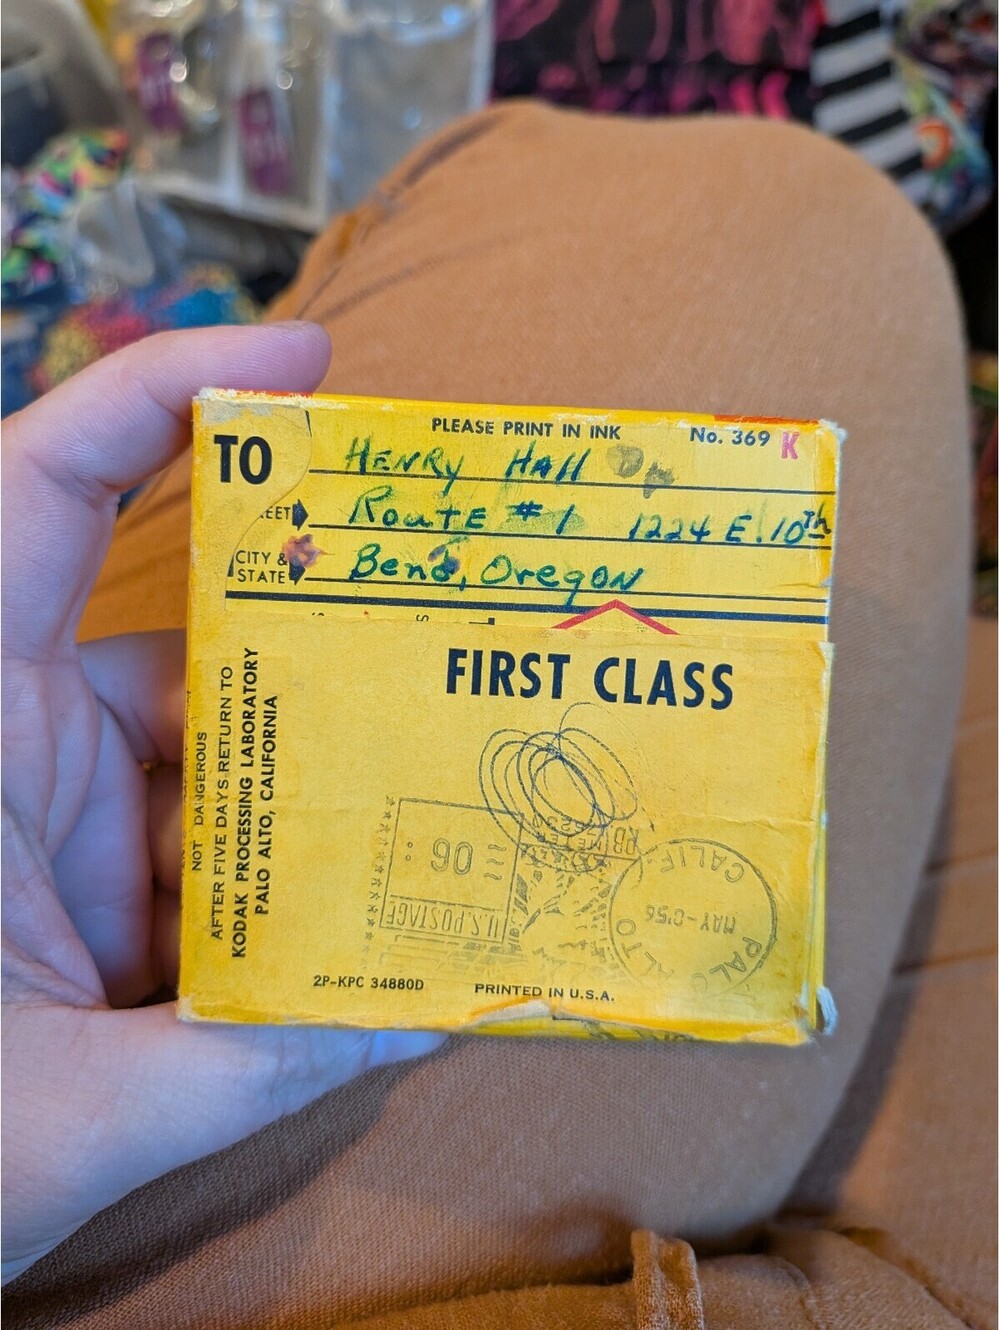 PLEASE PRINT IN INK No. 369 K
TO HENRY HAll
Route #1 1224 E. 10th
CITY & STATE Bend, Oregon
FIRST CLASS
NOT DANGEROUS
AFTER FIVE DAYS RETURN TO
KODAK PROCESSING LABORATORY
PALO ALTO, CALIFORNIA
06
U.S. POSTAGE
PB METER
PALO ALTO
CALIF.
MAY
2P-KPC 34880D PRINTED IN U.S.A.